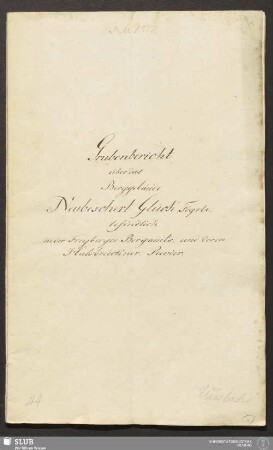 Grubenbericht
über das
Berggebäude
Neubeschert Glück Fdgr.
befindlich
in der Freyberger Bergamts- und deren
Halsbrückner Revier.
24
SLUB
Wir führen Wissen.